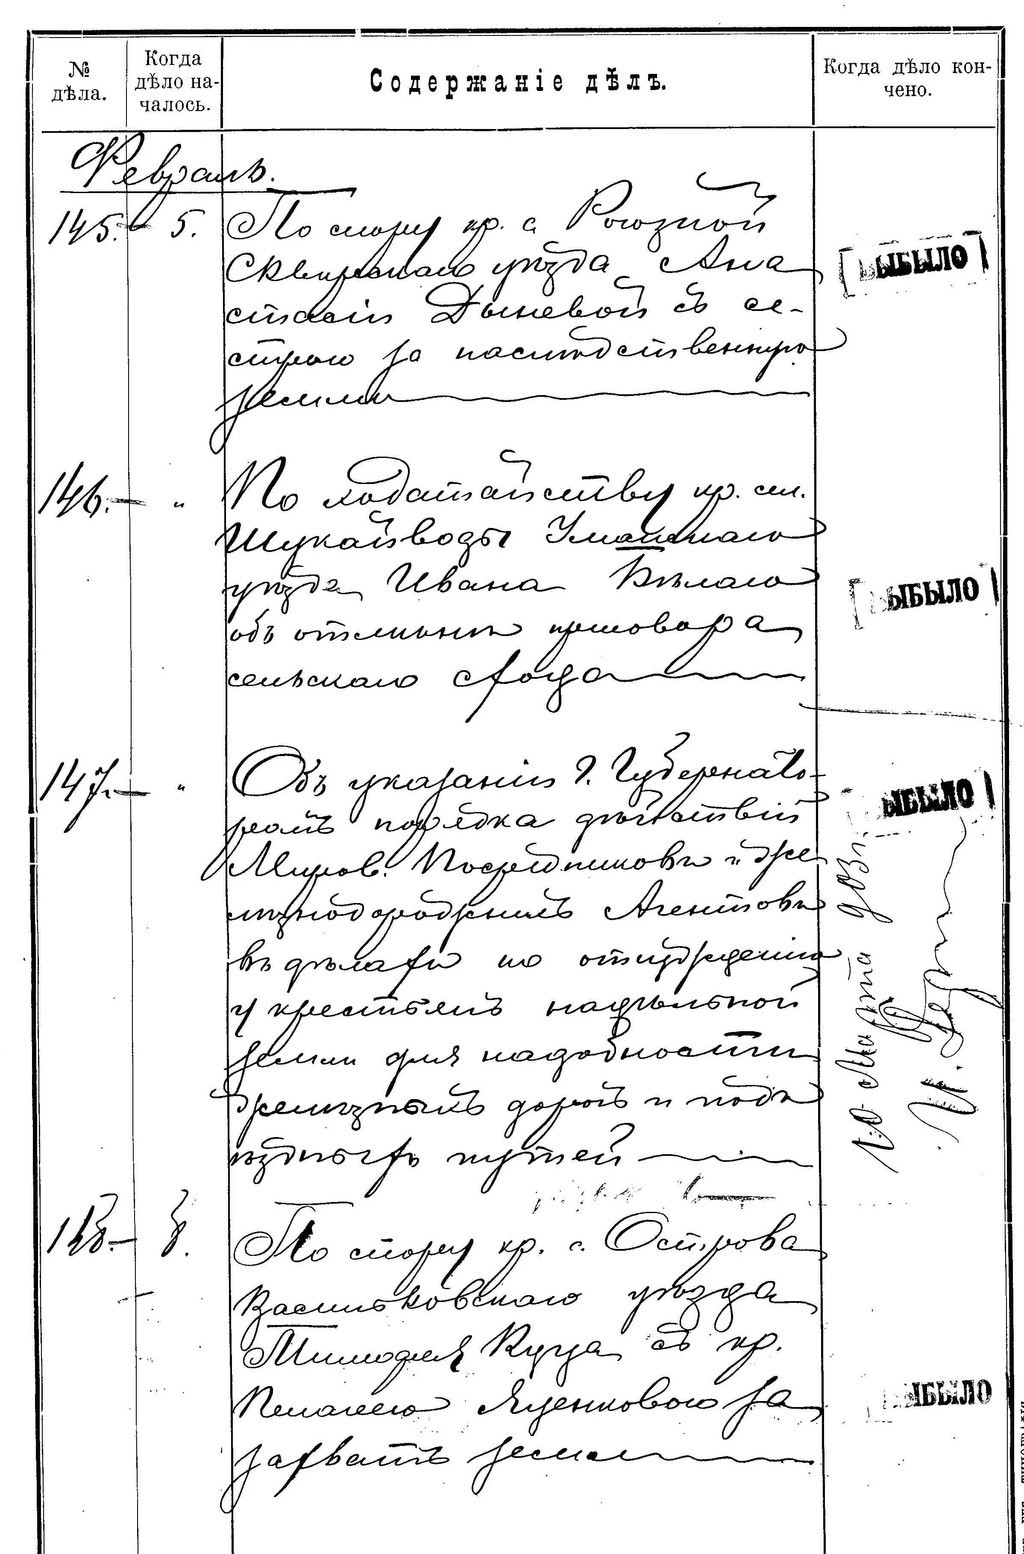 № дѣла.
Когда дѣло началось.
Содержаніе дѣлъ.
Когда дѣло кончено.
Февраль.
145. 5. По спору кр. с. Рогозной
Сквирскаго уѣзда Ана
стасіи Дыневой съ се-
строю за наслѣдственную
землю
ВЫБЫЛО
146. " По ходатайству кр. сел.
Шукайводы Уманскаго
уѣзда Ивана Бѣлаго
объ отмѣнѣ приговора
сельскаго схода
ВЫБЫЛО
147. " Объ указаніи г. Губернато-
ромъ порядка дѣйствій
Миров. Посредниковъ и же
лѣзнодорожныхъ Агентовъ
въ дѣлахъ по отчужденію
у крестьянъ надѣльной
земли для надобности
желѣзныхъ дорогъ и подъ
ѣздныхъ путей
ВЫБЫЛО
10 Марта 903 г.
148. 8. По спору кр. с. Острова
Васильковскаго уѣзда
Тимофея Куца съ кр.
Пелагеею Яценковою за
захватъ земли
ВЫБЫЛО